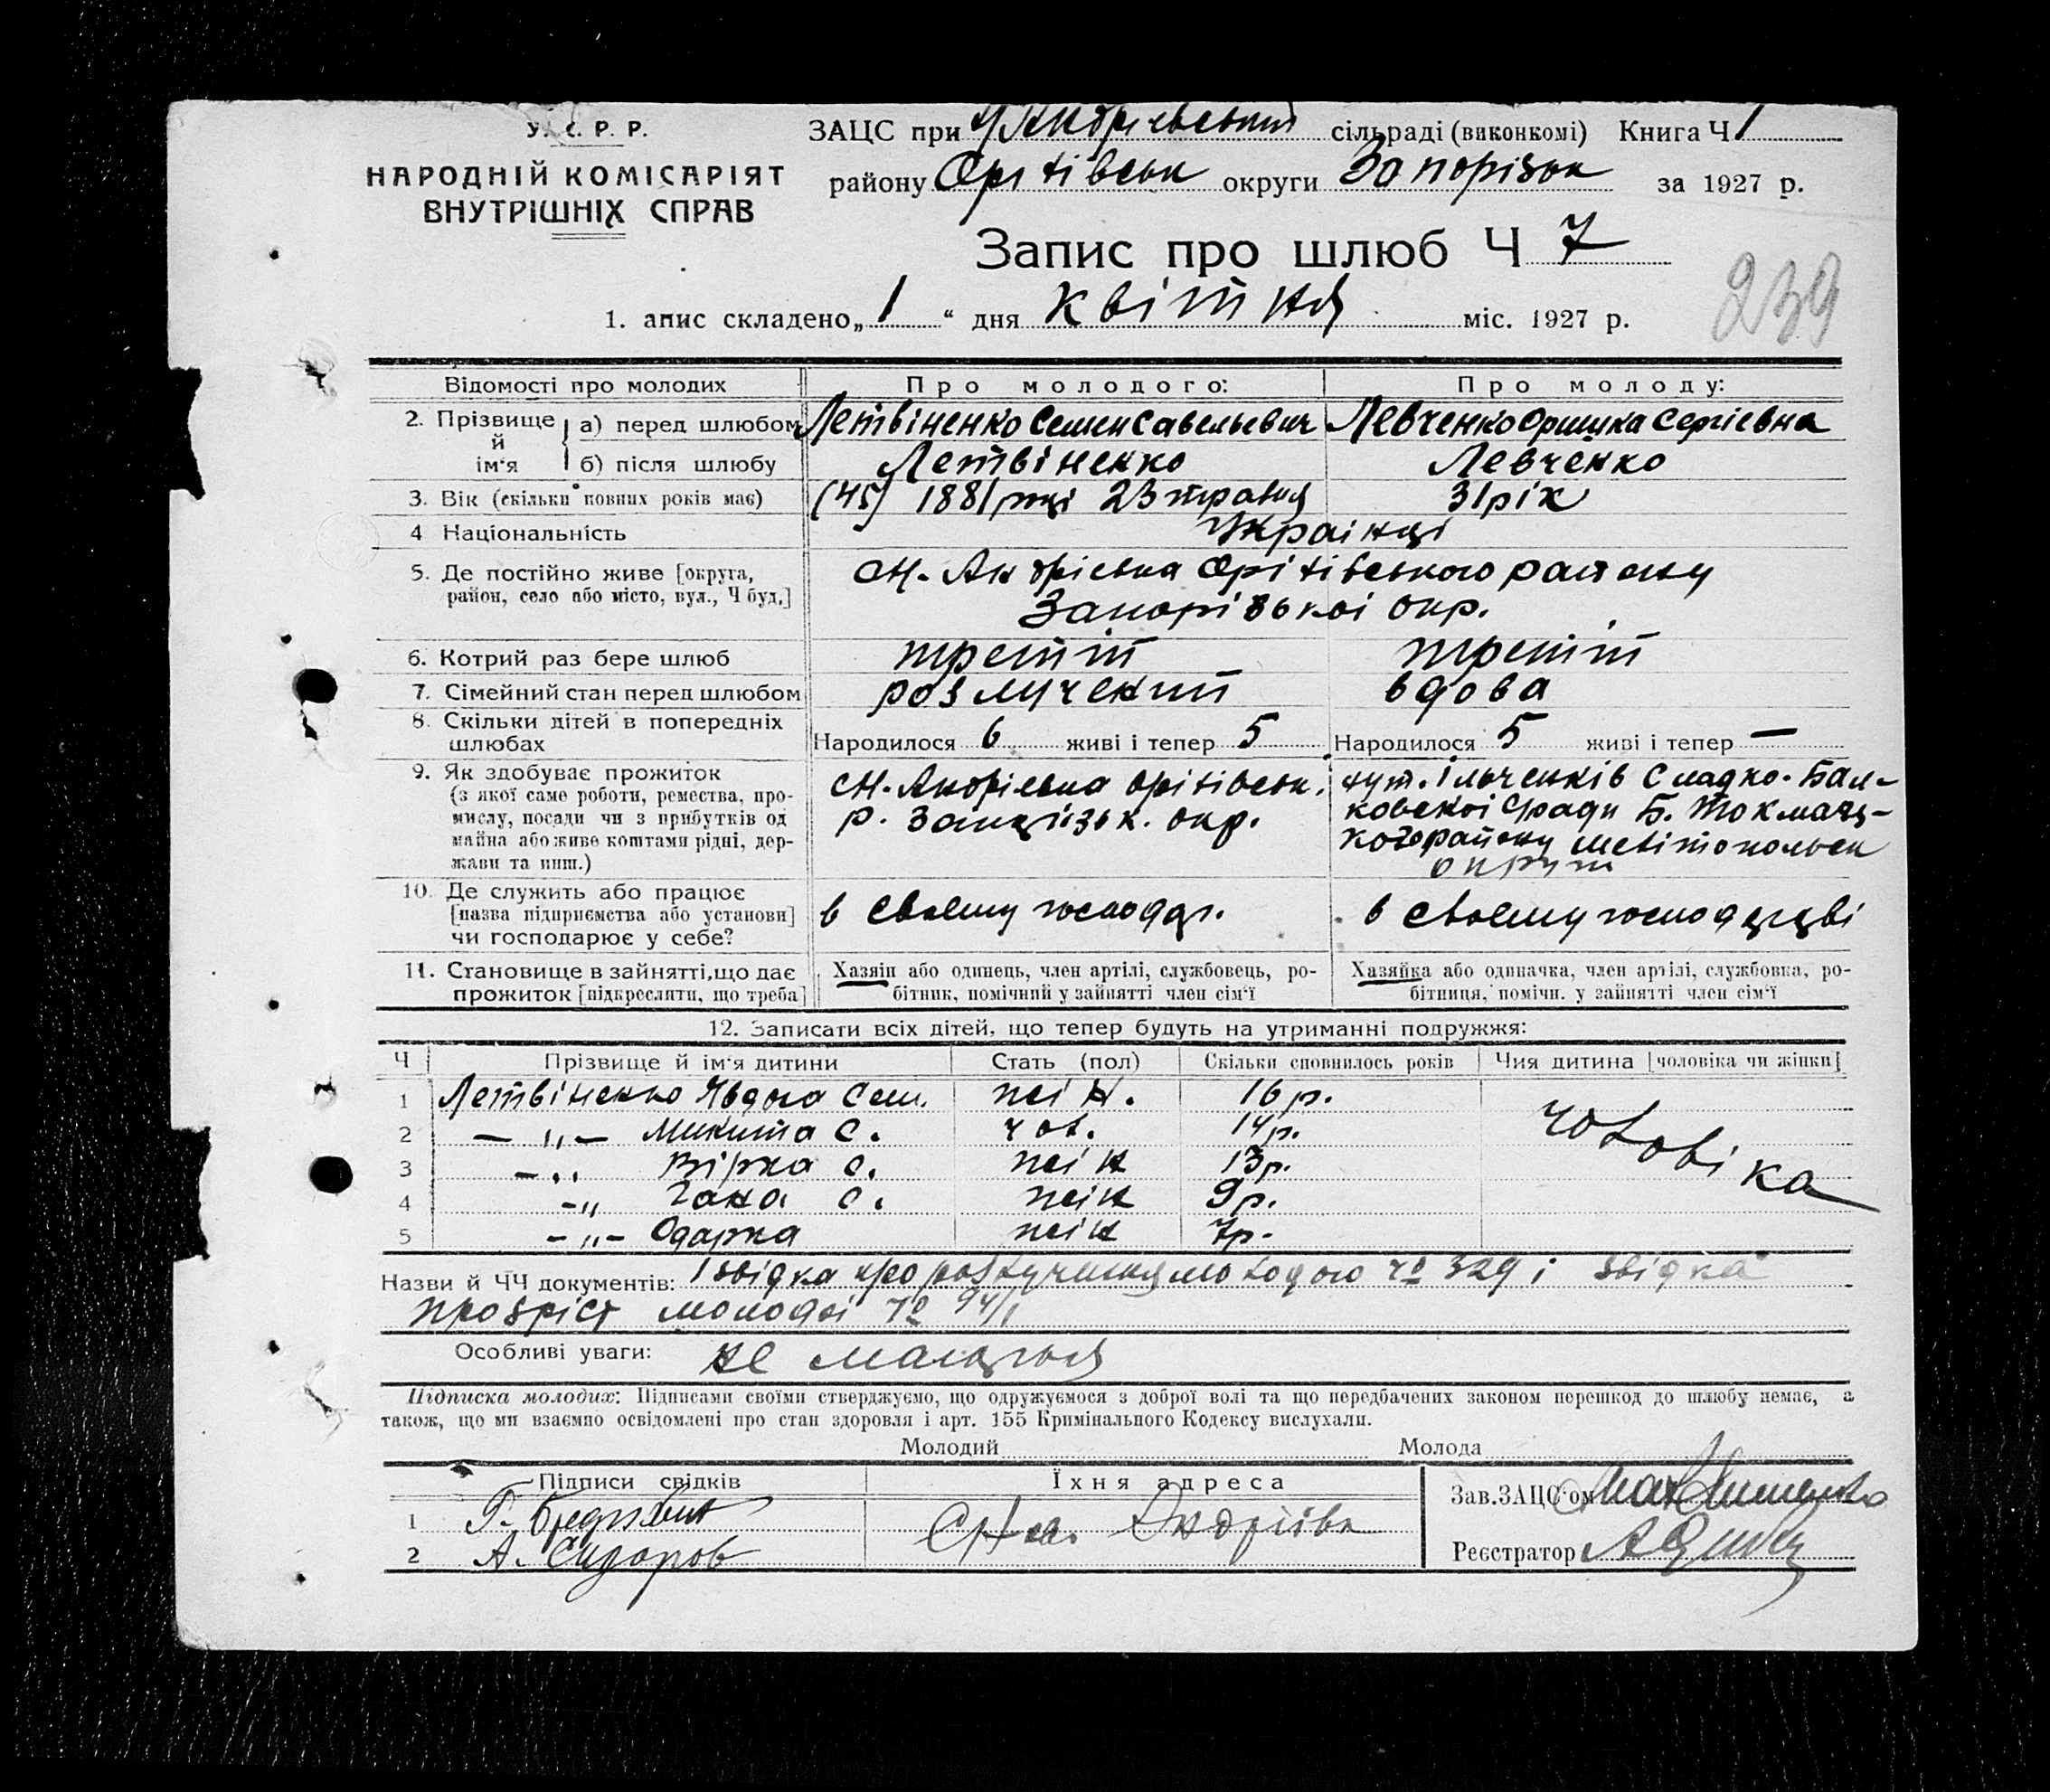 У. С. Р. Р.
НАРОДНІЙ КОМІСАРІЯТ
ВНУТРІШНІХ СПРАВ
ЗАЦС при сільраді (виконкомі) Книга Ч 1
району Оріхівськ округи Запорізьк за 1927 р.
Запис про шлюб Ч 7
239
1. апис складено „ 1 “ дня квітня міс. 1927 р.
Відомості про молодих Про молодого: Про молоду:
2. Прізвище й ім'я а) перед шлюбом Летвіненко Семен Савельевич Левченко Оришка Сергіевна
б) після шлюбу Летвіненко Левченко
3. Вік (скільки повних років має) (45) 1881 році 23 травня 31 рік
4 Національність Українці
5. Де постійно живе [округа, район, село або місто, вул., Ч буд.] Андрієвка Оріхівського району
Запорізької окр.
6. Котрий раз бере шлюб третій третій
7. Сімейний стан перед шлюбом розлучений вдова
8. Скільки дітей в попередніх шлюбах Народилося 6 живі і тепер 5 Народилося 5 живі і тепер —
9. Як здобуває прожиток
(з якої саме роботи, ремества, промислу, посади чи з прибутків од майна або живе коштами рідні, держави та инш.)
Андрієвка Оріхівськ.
р. Запоізьк. окр.
хут. Ільченків Сладко-Бал-
ковської с/ради Б. Токмаць-
кого району Мелітопольск
округи
10. Де служить або працює
[назва підприємства або установи]
чи господарює у себе?
в своему господар. в своему господарстві
11. Становище в зайнятті, що дає
прожиток [підкреслити, що треба]
Хазяїн або одинець, член артілі, службовець, ро-
бітник, помічний у зайнятті член сім'ї
Хазяйка або одиначка, член артілі, службовка, ро-
бітниця, помічн. у зайнятті член сім'ї
12. Записати всіх дітей, що тепер будуть на утриманні подружжя:
Ч Прізвище й ім'я дитини Стать (пол) Скільки сповнилось років Чия дитина [чоловіка чи жінки]
1 Летвіненко Явдоха Сем. жін. 16 р. чоловіка
2 — „ — Микита С. чол. 14 р.
3 — „ Вірка С. жін 13 р.
4 — „ Гана С. жін 9 р.
5 — „ — Одарка жін 7 р.
Назви й ЧЧ документів: звідка про розлучення молодого № 329 і звідка
про зріст молодої № 94/1
Особливі уваги: не мається
Підписка молодих: Підписами своїми стверджуємо, що одружуємося з доброї волі та що передбачених законом перешкод до шлюбу немає, а
також, що ми взаємно освідомлені про стан здоровля і арт. 155 Кримінального Кодексу вислухали.
Молодий Молода
Підписи свідків Їхня адреса Зав. ЗАЦС'ом
1 Г.
2 А. Сидоров
Андріївка
Реєстратор